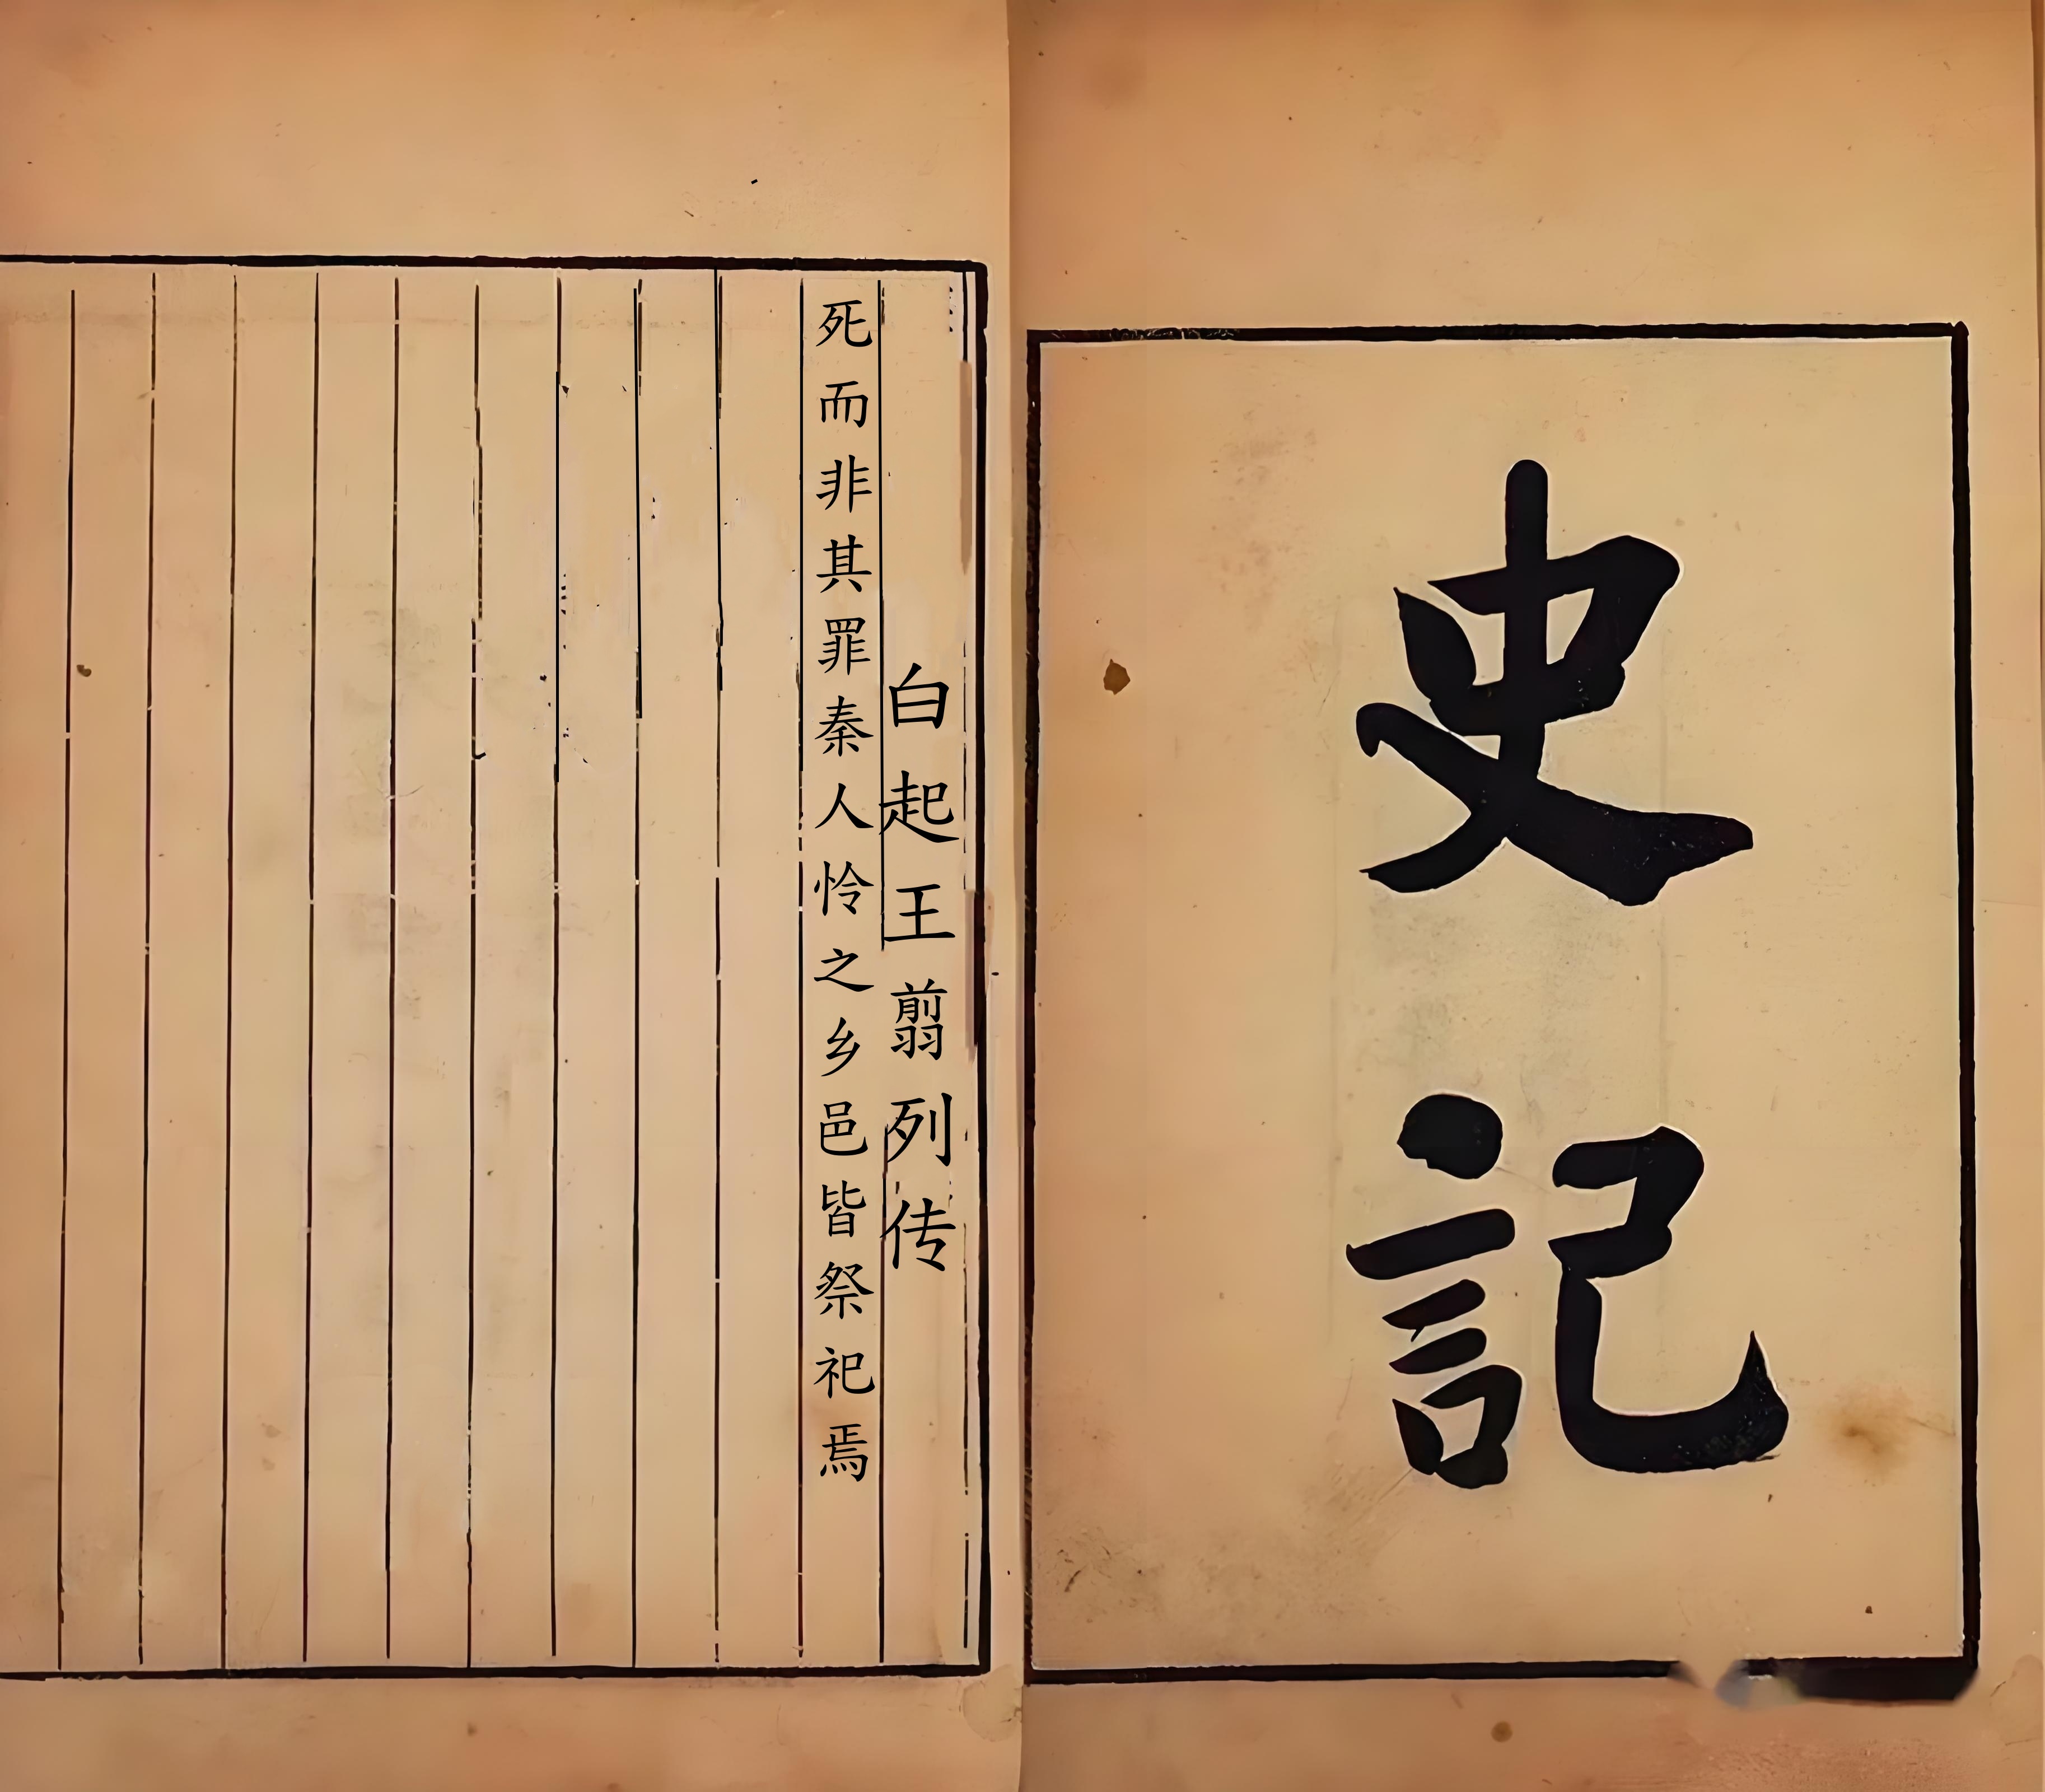 史記
白起王翦列传
死而非其罪秦人怜之乡邑皆祭祀焉